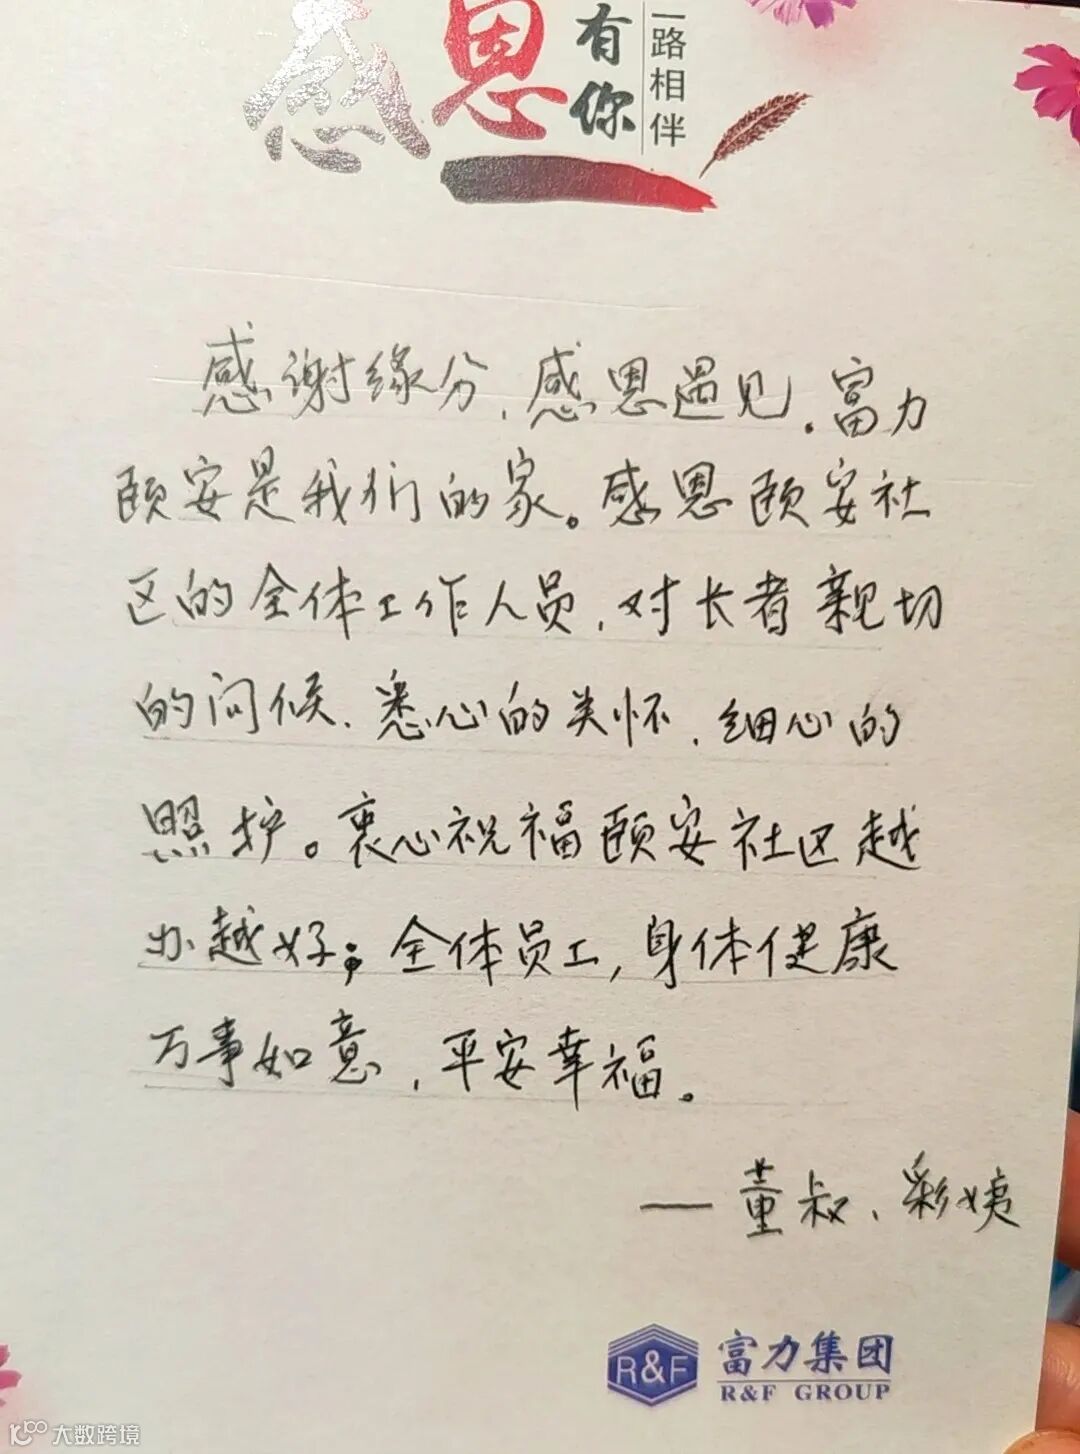 感恩
有你
一路相伴
感谢缘分,感恩遇见.富力
颐安是我们的家。感恩颐安社
区的全体工作人员,对长者亲切
的问候、悉心的关怀、细心的
照护。衷心祝福颐安社区越
办越好;全体员工,身体健康
万事如意,平安幸福。
——董叔、彩姨
R&F
富力集团
R&F GROUP
大数跨境